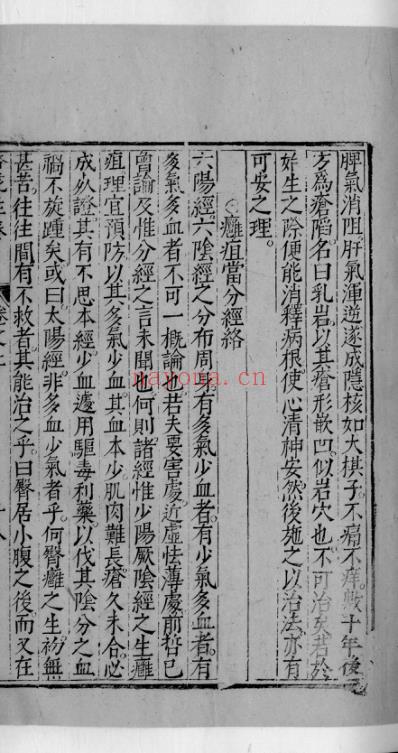 脾氣消阻肝氣滙逆遂成隱核如大棋子不痛不痒數十年後
方爲瘡陷名曰乳岩以其瘡形嵌凹似岩穴也不可治矣若於
始生之際便能消釋病根使心清神安然後施之以治法亦有
可安之理
癰疽當分經絡
六陽經六陰經之分布周身有多氣少血者有少氣多血者有
多氣多血者不可一概論也若夫要害處近虛怯薄處前哲已
曾論及惟分經之言未聞也何則諸經惟少陽厥陰經之生癰
疽理宜預防以其多氣少血其血本少肌肉難長瘡久未合必
成死證其有不思本經少血遽用驅毒利藥以伐其陰分之血
禍不旋踵矣或曰太陽經非多血少氣者乎何臀癰之生初無
甚苦往往間有不救者其能治之乎曰臀居小腹之後而又在
nayona.cn